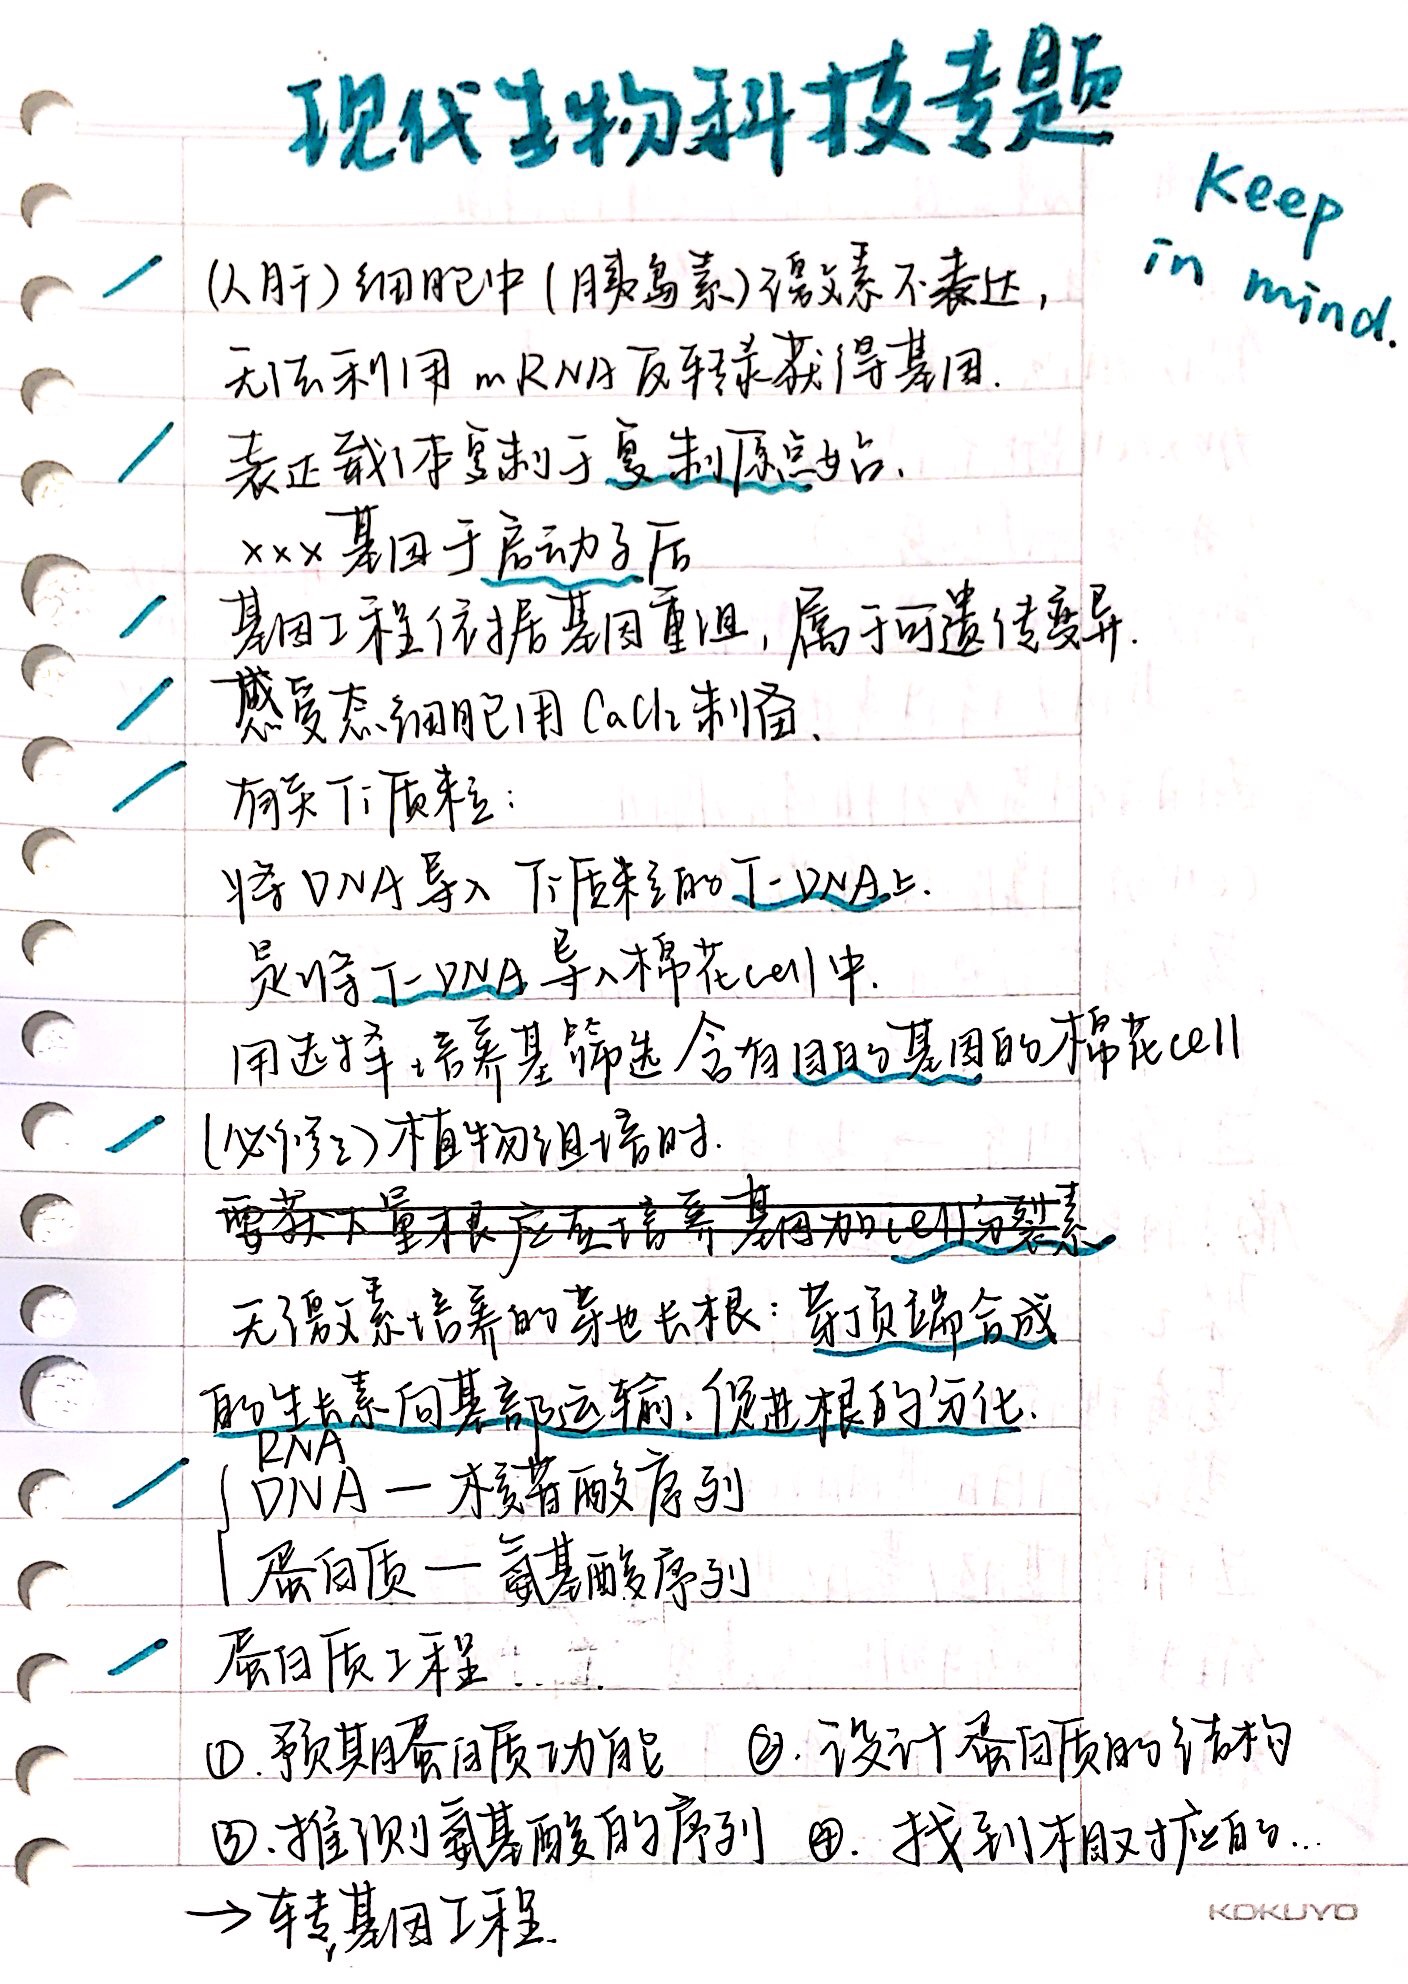 现代生物科技专题
Keep
in mind.
(人肝)细胞中(胰岛素)激素不表达,
无法利用mRNA反转录获得基因.
表达载体复制于复制原点始.
×××基因于启动子后
基因工程依据基因重组,属于可遗传变异.
感受态细胞用CaCl₂制备.
有关Ti质粒:
将DNA导入Ti质粒的T-DNA上.
是将T-DNA导入棉花cell中.
用选择培养基筛选含有目的基因的棉花cell
(必修3)植物组培时.
要获大量根应在培养基因加cell分裂素
无激素培养的芽也长根:芽顶端合成
的生长素向基部运输,促进根的分化.
RNA
DNA — 核苷酸序列
蛋白质 — 氨基酸序列
蛋白质工程......
①.预期蛋白质功能 ②.设计蛋白质的结构
③.推测氨基酸的序列 ④.找到相对应的...
→转基因工程.
KOKUYO